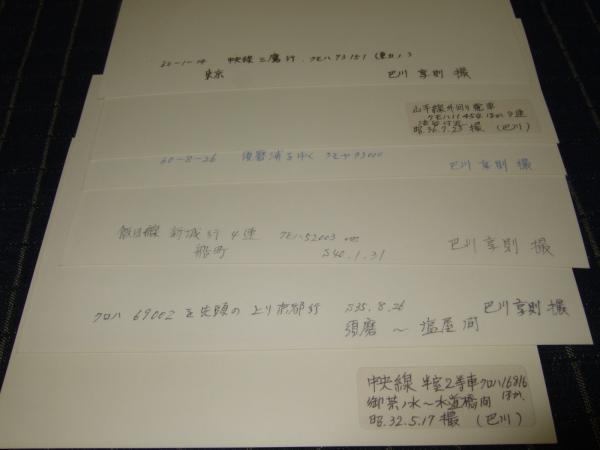 60-1-14 中央線三鷹行.クモハ73151
東京 巴川享則 撮
山手線外回り電車
クモハ11450ほか9連
昭.36.7.23撮 (巴川)
60-8-26 須磨浦をゆく クモヤ93000 巴川享則撮
飯田線 新城行 4連 クモハ52003
船町 S40.1.31 巴川享則 撮
クロハ 69002 を先頭の上り京都行 S35.8.26 巴川享則撮
須磨〜塩屋間
中央線 半室2等車クロハ16816
御茶ノ水〜水道橋間 ほか.
昭.32.5.17撮 (巴川)